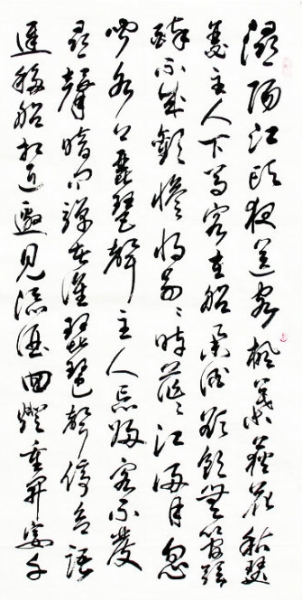 潯陽江頭夜送客楓葉荻花秋瑟
瑟主人下馬客在船舉酒欲飲無管弦
醉不成歡慘將別〻時茫〻江浸月忽
聞水上琵琶聲主人忘歸客不發
尋聲暗問彈者誰琵琶聲停欲語
遲移船相近邀見添酒回燈重開宴千